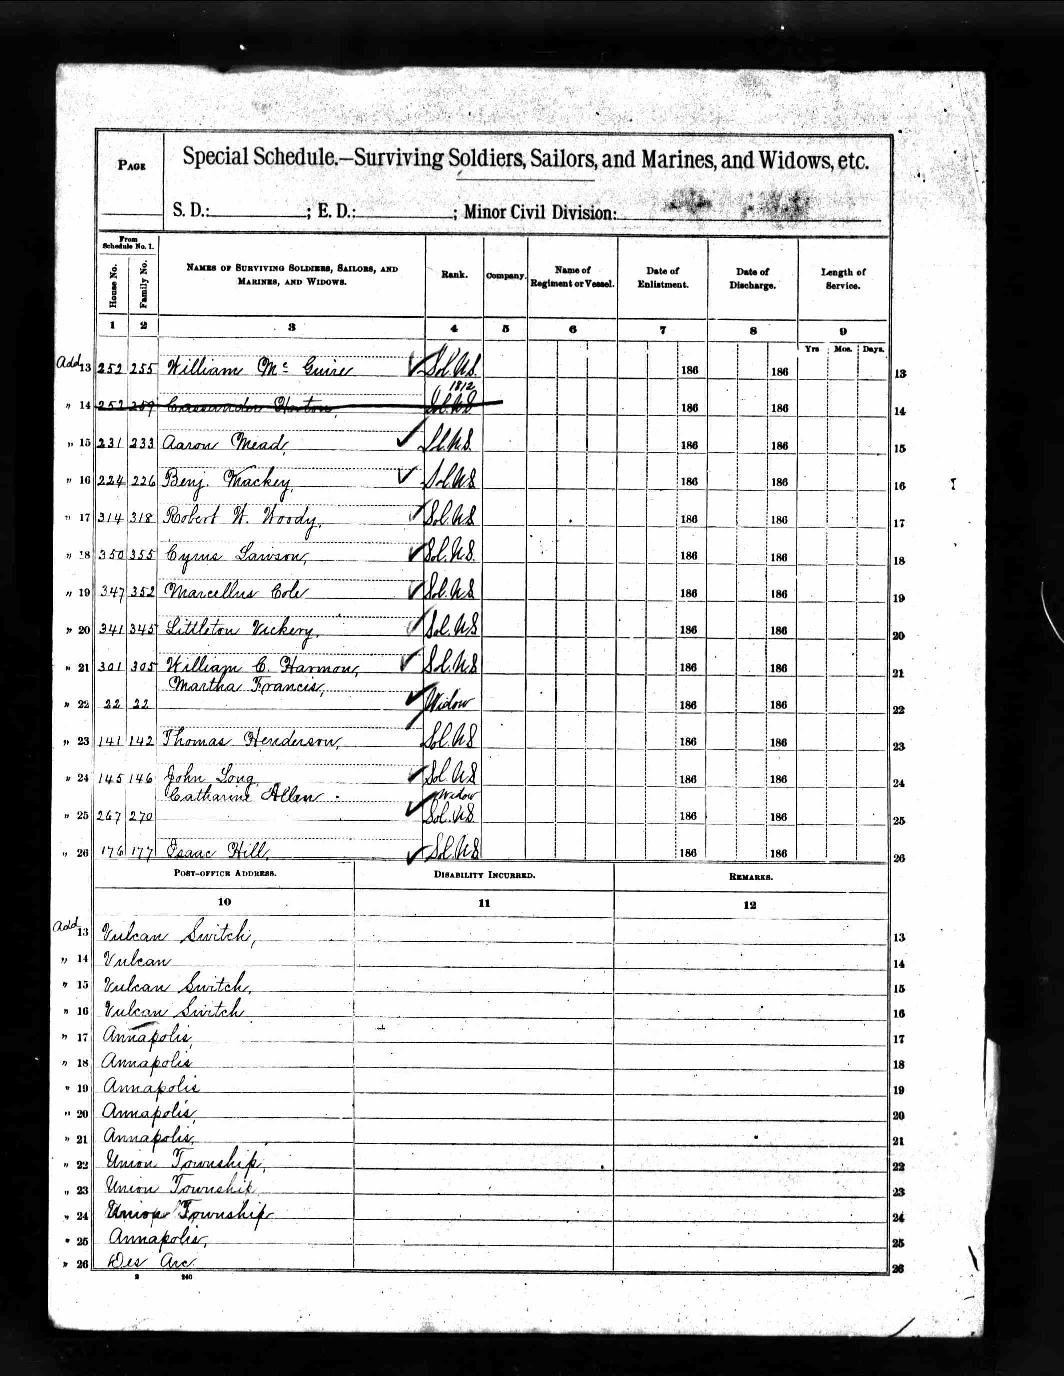 PAGE
Special Schedule.—Surviving Soldiers, Sailors, and Marines, and Widows, etc.
S. D.: ; E. D.: ; Minor Civil Division:
From Schedule No. 1.
House No. Family No. NAMES OF SURVIVING SOLDIERS, SAILORS, AND MARINES, AND WIDOWS. Rank. Company. Name of Regiment or Vessel. Date of Enlistment. Date of Discharge. Length of Service.
1 2 3 4 5 6 7 8 9
Yrs Mos. Days.
Add 13 252 255 William Mc Guire Sol. U.S. 186 186 13
1812
" 14 252 259 Cassander Horton, Sol. U.S 186 186 14
" 15 231 233 Aaron Mead, Sol. U.S. 186 186 15
" 16 224 226 Benj. Mackey, Sol. U.S 186 186 16
" 17 314 318 Robert W. Woody, Sol. U.S 186 186 17
" 18 350 355 Cyrus Lawson, Sol. U.S. 186 186 18
" 19 347 352 Marcellus Cole Sol. U.S 186 186 19
" 20 341 345 Littleton Vickery, Sol. U.S 186 186 20
" 21 301 305 William C. Harmon, Sol. U.S 186 186 21
Martha Francis,
" 22 22 22 Widow 186 186 22
" 23 141 142 Thomas Henderson, Sol. U.S 186 186 23
" 24 145 146 John Long Sol U.S 186 186 24
Catharine Allen Widow
" 25 267 270 Sol. U.S 186 186 25
" 26 176 177 Isaac Hill, Sol. U.S 186 186 26
POST-OFFICE ADDRESS. DISABILITY INCURRED. REMARKS.
10 11 12
Add 13 Vulcan Switch, 13
" 14 Vulcan 14
" 15 Vulcan Switch, 15
" 16 Vulcan Switch 16
" 17 Annapolis, 17
" 18 Annapolis 18
" 19 Annapolis 19
" 20 Annapolis, 20
" 21 Annapolis, 21
" 22 Union Township, 22
" 23 Union Township 23
" 24 Union Township 24
" 25 Annapolis, 25
" 26 Des Arc 26
2 240